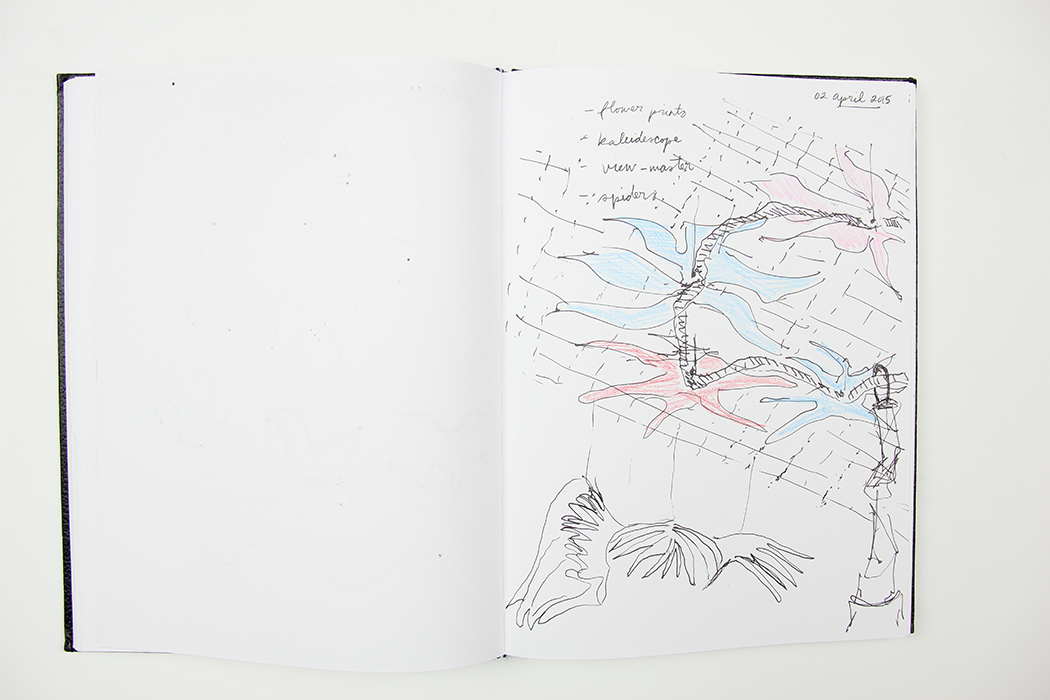 02 april 2015
- flower prints
- kaleidescope
- view-master
- spiders